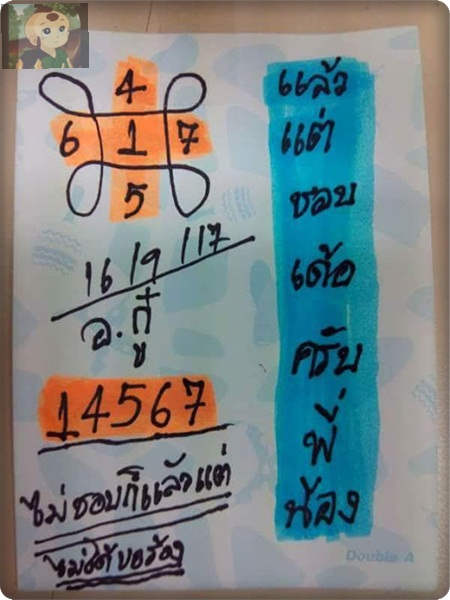 4
6 1 7
5
16 19 117
อ.กู๋
14567
ไม่ชอบก็แล้วแต่
ไม่ได้ขอร้อง
แล้ว
แต่
ชอบ
เด้อ
ครับ
พี่
น้อง
Double A